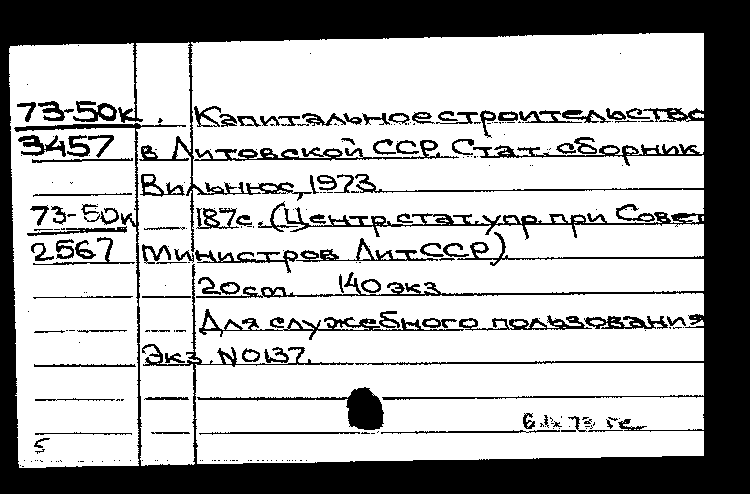 73-50к. Капитальное строительство
3457 в Литовской ССР. Стат. сборник.
Вильнюс, 1973.
73-50к 187с. (Центр. стат. упр. при Совет
2567 Министров ЛитССР).
20см. 140экз.
Для служебного пользования
Экз. N0137.
6 IX 73
5